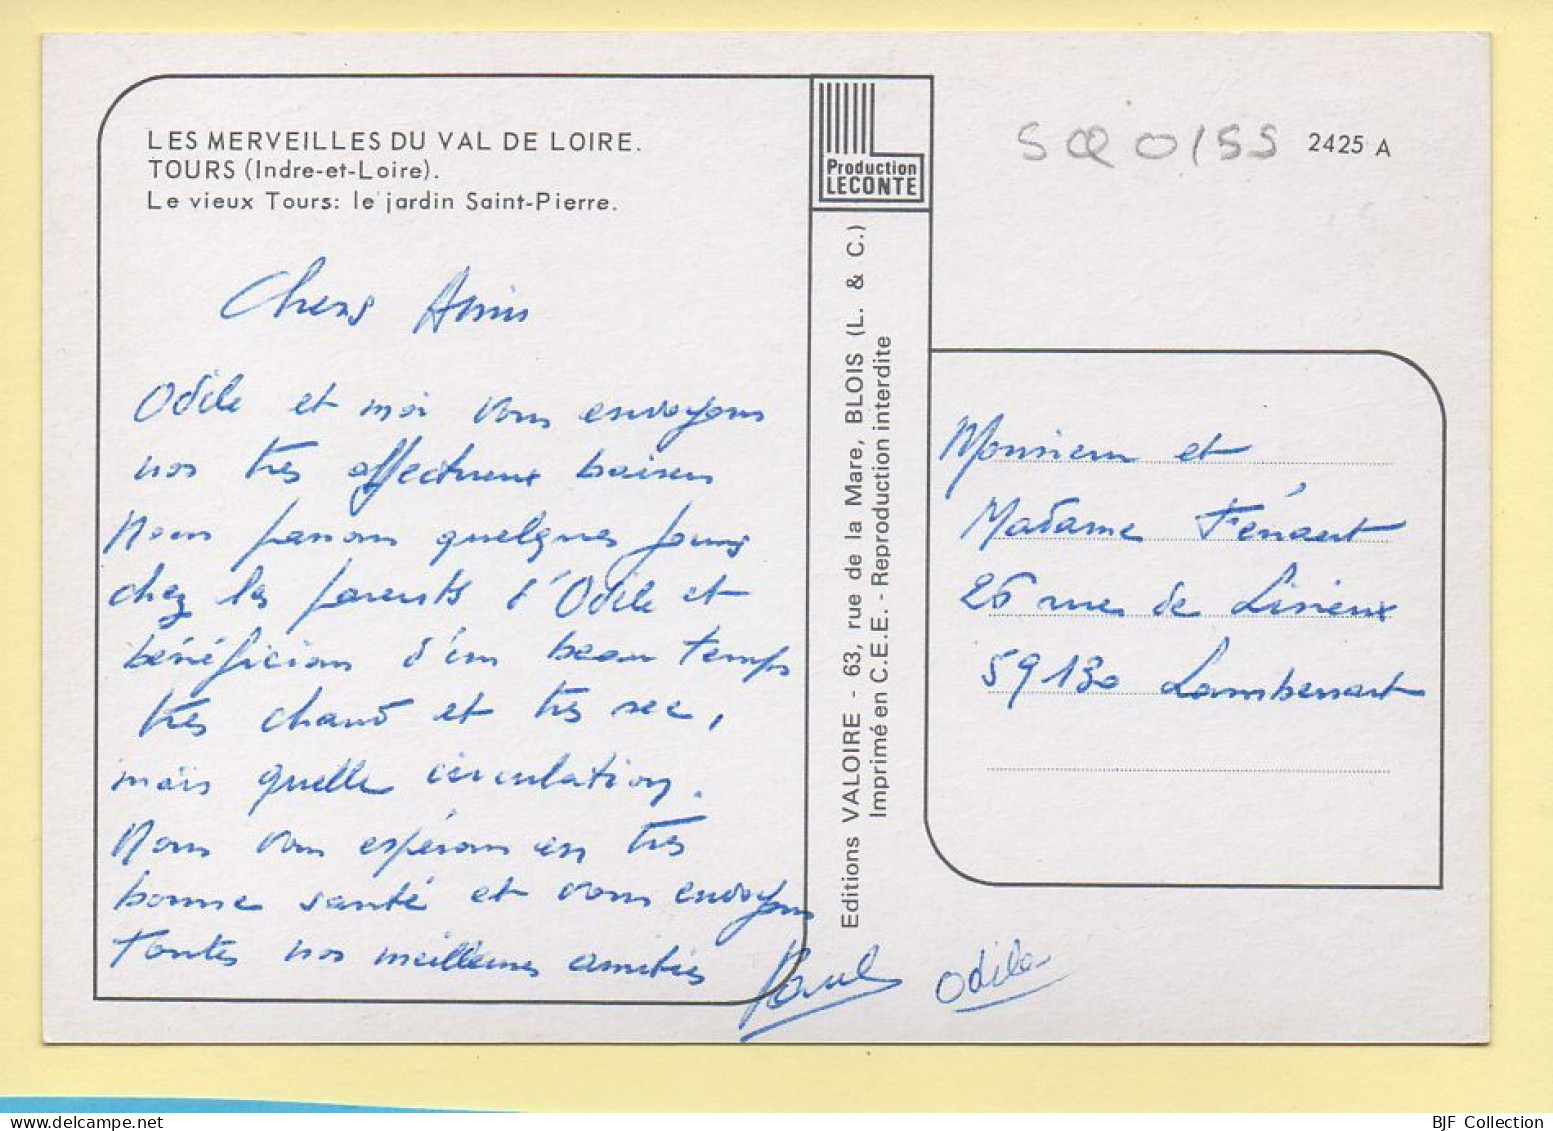 LES MERVEILLES DU VAL DE LOIRE.
TOURS (Indre-et-Loire).
Le vieux Tours: le jardin Saint-Pierre.
Chers Amis
Odile et moi vous envoyons
nos très affectueux baisers
Nous passons quelques jours
chez les parents d'Odile et
bénéficions d'un beau temps
très chaud et très sec,
mais quelle circulation.
Nous vous espérons en très
bonne santé et vous envoyons
toutes nos meilleures amitiés
Paul Odile
Production
LECONTE
Editions VALOIRE - 63, rue de la Mare, BLOIS (L. & C.)
Imprimé en C.E.E. - Reproduction interdite
SQ 0155
2425 A
Monsieur et
Madame Fénart
26 rue de Lisieux
59130 Lambersart
BJF Collection